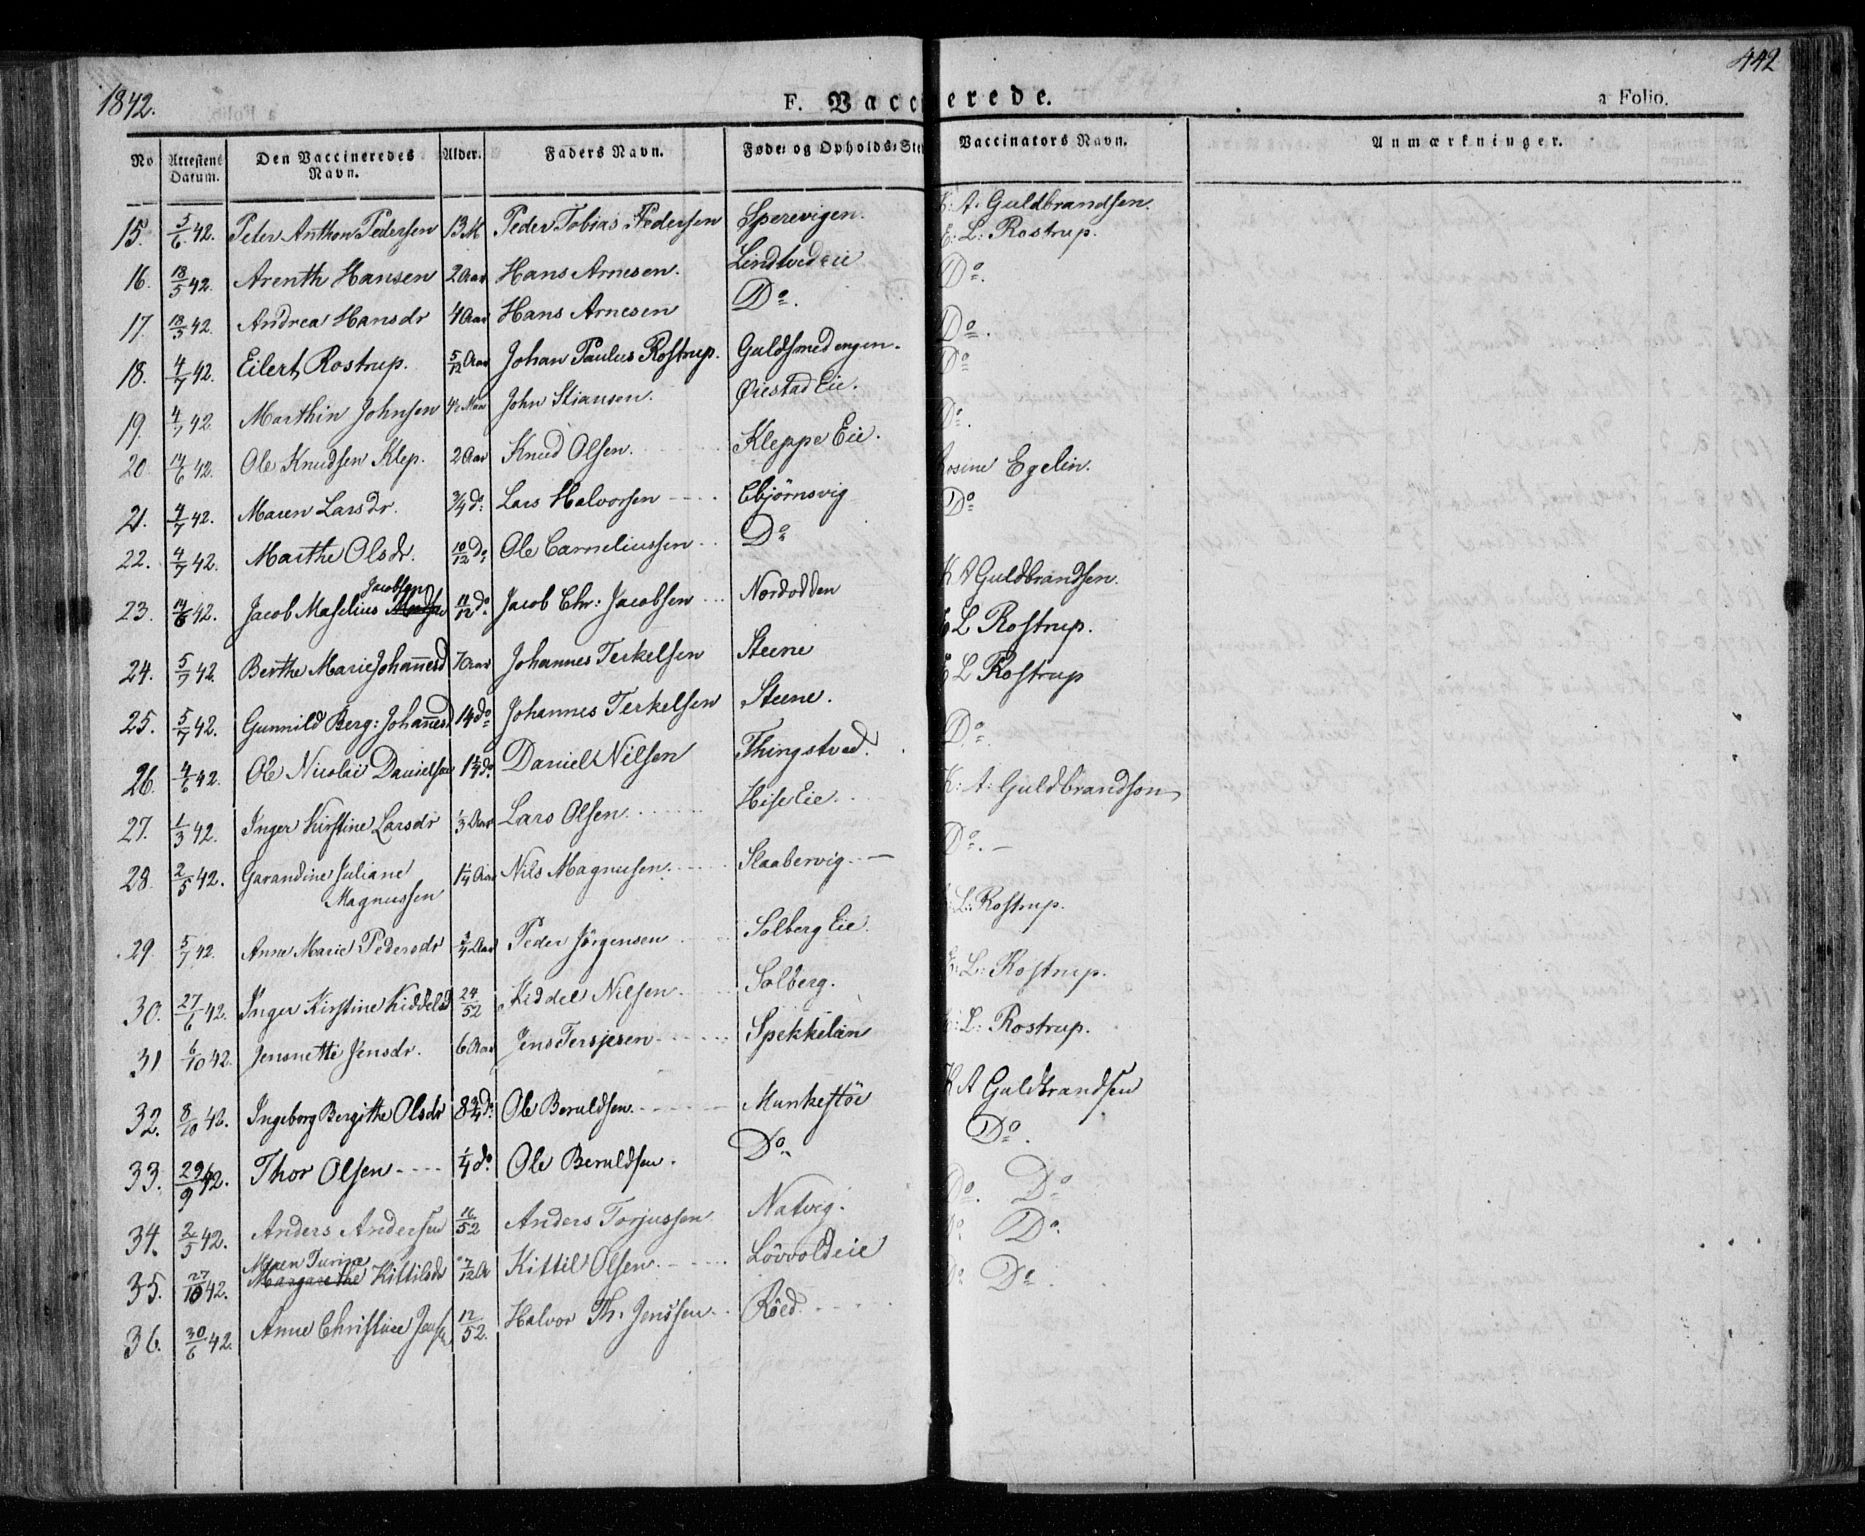 1842. F. Vaccinerede. 442
a Folio.
No Attestens Datum. Den Vaccineredes Navn. Alder. Faders Navn. Føde: og Opholds:Sted Vaccinators Navn. Anmærkninger.
15. 5/6 42. Peter Anthon Pedersen 13 M Peder Tobias Pedersen Sperevigen. K: A. Guldbrandsen.
E: L: Rostrup.
16. 18/5 42. Arenth Hansen 2 Aar Hans Arnesen. Lindtvedeie Do.
17. 18/5 42. Andrea Hansdr 4 Aar Hans Arnesen Do. Do.
18. 4/7 42. Eilert Rostrup. 5/12 Aar Johan Paulus Rostrup. Guldsmedengen. Do
19. 4/7 42 Marthin Johnsen John Stiansen. Øiestad Eie. Do.
20 14/6 42. Ole Knudsen Klep. 2 Aar Knud Olsen. Kleppe Eie. Rosine Egelin.
21. 4/7 42. Maren Larsdr. 3/4 do: Lars Halvorsen Ebjörnsvig Do
22. 4/7 42. Marthe Olsdr. 10/12 Do Ole Corneliussen Do
23. 14/6 42. Jacob Maselius Jacobsen 11/12 do. Jacob Chr: Jacobsen Nordodden K A Guldbrandsen.
24. 5/7 42. Berthe Marie Johannesd 7 Aar Johannes Terkelsen Steene E L Rostrup.
25. 5/7 42. Gunnild Berg: Johannesd 14 do Johannes Terkelsen Steene. E L Rostrup
26. 4/6 42. Ole Nicolai Danielsen 1 1/4 do. Daniel Nilsen Thingstved. Do.
27. 1/3 42. Inger Kirstine Larsdr 1/3 Aar Lars Olsen Hise Eie. K: A: Guldbrandsen
28. 2/5 42. Garandine Juliane Magnussen 1 1/4 Aar Nils Magnusen. Slaabervig Do.
29. 5/7 42. Anne Marie Pedersdr Peder Jörgensen Solberg Eie. L: Rostrup.
30. 27/6 42. Inger Kirstine Kiddelsd 24/52 Kiddel Nilsen Solberg. E: L: Rostrup.
31 6/10 42. Jensnette Jensdr. 6 Aar Jens Tersjesen Spekkelien L: Rostrup.
32. 8/10 42. Ingeborg Bergithe Olsdr 8 3/4 do. Ole Beruldsen. Munkestöe K A Guldbrandsen
33. 29/9 42. Thor Olsen 1/4 do. Ole Beruldsen. Do. Do.
34. 2/5 42. Anders Andersen 16/52 Anders Torjussen Natvig. Do. Do
35. 27/10 42. Maren Turine Margarethe Kittilsdr 7/12 A Kittil Olsen. Lövvoldeie Do Do.
36. 30/6 42. Anne Christine 12/52. Halvor Th. Jenssen Röed. Do Do.